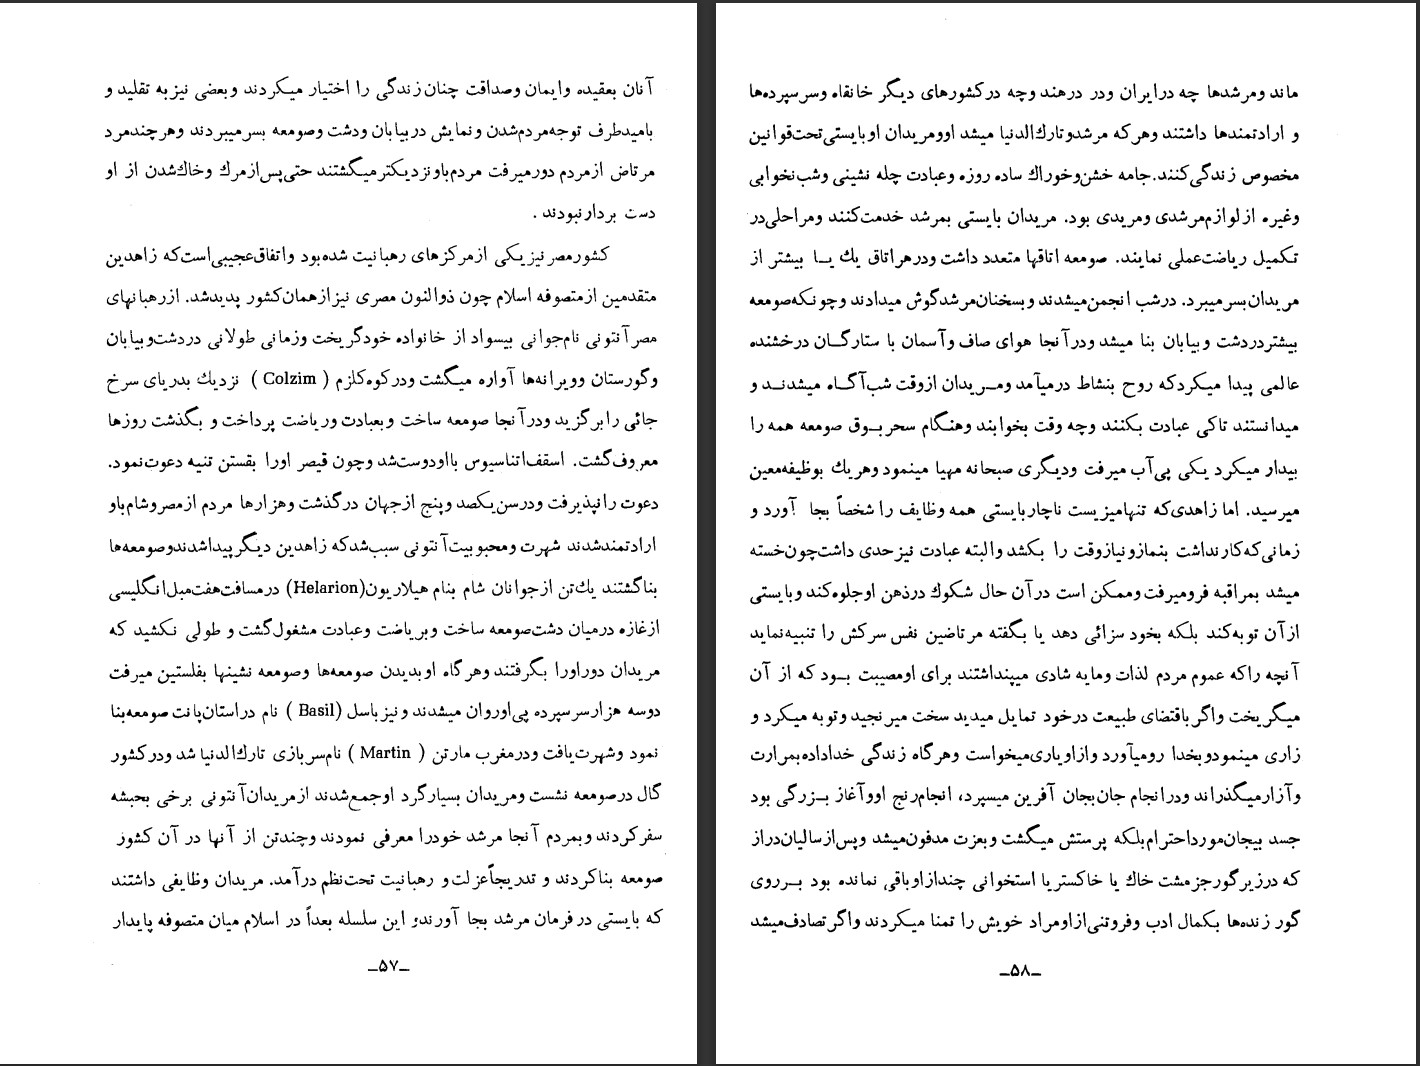 آنان بعقیده وایمان وصداقت چنان زندگی را اختیار میکردند وبعضی نیز به تقلید و
بامید طرف توجه مردم شدن و نمایش در بیابان ودشت وصومعه بسر میبردند وهرچند مرد
مرتاض از مردم دور میرفت مردم باو نزدیکتر میگشتند حتی پس از مرك وخاك شدن از او
دست بردار نبودند .
کشور مصر نیز یکی از مرکزهای رهبانیت شده بود واتفاق عجیبی است که زاهدین
متقدمین از متصوفه اسلام چون ذوالنون مصری نیز از همان کشور پدید شد. از رهبانهای
مصر آنتونی نام جوانی بیسواد از خانواده خود گریخت وزمانی طولانی در دشت و بیابان
وگورستان وویرانه‌ها آواره میگشت ودر کوه کلزم ( Colzim ) نزدیك بدریای سرخ
جائی را برگزید ودر آنجا صومعه ساخت و بعبادت وریاضت پرداخت و بگذشت روزها
معروف گشت. اسقف اتناسیوس با او دوست شد وچون قیصر اورا بقستن تنیه دعوت نمود.
دعوت را نپذیرفت ودر سن یکصد وپنج از جهان درگذشت وهزارها مردم از مصر وشام باو
ارادتمند شدند شهرت ومحبوبیت آنتونی سبب شد که زاهدین دیگر پیدا شدند وصومعه‌ها
بنا گشتند یك تن از جوانان شام بنام هیلاریون(Helarion) در مسافت هفت میل انگلیسی
از غازه در میان دشت صومعه ساخت وبریاضت وعبادت مشغول گشت و طولی نکشید که
مریدان دور اورا بگرفتند وهرگاه او بدیدن صومعه‌ها وصومعه نشینها بفلستین میرفت
دوسه هزار سرسپرده پی او روان میشدند ونیز باسل (Basil ) نام در استان پانت صومعه بنا
نمود وشهرت یافت ودر مغرب مارتن ( Martin ) نام سربازی تارك الدنیا شد ودر کشور
گال در صومعه نشست ومریدان بسیار گرد او جمع شدند از مریدان آنتونی برخی بحبشه
سفر کردند وبمردم آنجا مرشد خودرا معرفی نمودند وچند تن از آنها در آن کشور
صومعه بنا کردند و تدریجاً عزلت و رهبانیت تحت نظم درآمد. مریدان وظایفی داشتند
که بایستی در فرمان مرشد بجا آورند و این سلسله بعداً در اسلام میان متصوفه پایدار
ـ۵۷ـ
ماند ومرشدها چه در ایران ودر درهند وچه در کشورهای دیگر خانقاه وسرسپرده‌ها
و ارادتمندها داشتند وهرکه مرشد وتارك الدنیا میشد او ومریدان او بایستی تحت قوانین
مخصوص زندگی کنند. جامه خشن وخوراك ساده روزه وعبادت چله نشینی وشب نخوابی
وغیره از لوازم مرشدی ومریدی بود. مریدان بایستی بمرشد خدمت کنند ومراحلی در
تکمیل ریاضت عملی نمایند. صومعه اتاقها متعدد داشت ودر هر اتاق یك یــا بیشتر از
مریدان بسر میبرد. در شب انجمن میشدند و بسخنان مرشد گوش میدادند وچونکه صومعه
بیشتر در دشت وبیابان بنا میشد ودر آنجا هوای صاف وآسمان با ستارگــان درخشنده
عالمی پیدا میکرد که روح بنشاط درمیآمد ومــریدان از وقت شب آگــاه میشدنــد و
میدانستند تاکی عبادت بکنند وچه وقت بخوابند وهنگام سحر بــوق صومعه همه را
بیدار میکرد یکی پی آب میرفت ودیگری صبحانه مهیا مینمود وهر یك بوظیفه معین
میرسید. اما زاهدی که تنها میزیست ناچار بایستی همه وظایف را شخصاً بجا آورد و
زمانی که کار نداشت بنماز ونیاز وقت را بکشد والبته عبادت نیز حدی داشت چون خسته
میشد بمراقبه فرو میرفت وممکن است در آن حال شکوك در ذهن او جلوه کند وبایستی
از آن توبه کند بلکه بخود سزائی دهد یا بگفته مرتاضین نفس سرکش را تنبیه نماید
آنچه را که عموم مردم لذات ومایه شادی میپنداشتند برای او مصیبت بــود که از آن
میگریخت واگر باقتضای طبیعت در خود تمایل میدید سخت میرنجید وتوبه میکرد و
زاری مینمود وبخدا رو میآورد واز او یاری میخواست وهرگاه زندگی خداداده بمرارت
وآزار میگذراند ودر انجام جان بجان آفرین میسپرد، انجام رنج او وآغاز بــزرگی بود
جسد بیجان مورد احترام بلکه پرستش میگشت وبعزت مدفون میشد وپس از سالیان دراز
که در زیر گور جز مشت خاك یا خاکستر یا استخوانی چند از او باقی نمانده بود بــر روی
گور زنده‌ها بکمال ادب وفروتنی از او مراد خویش را تمنا میکردند واگر تصادف میشد
ـ۵۸ـ